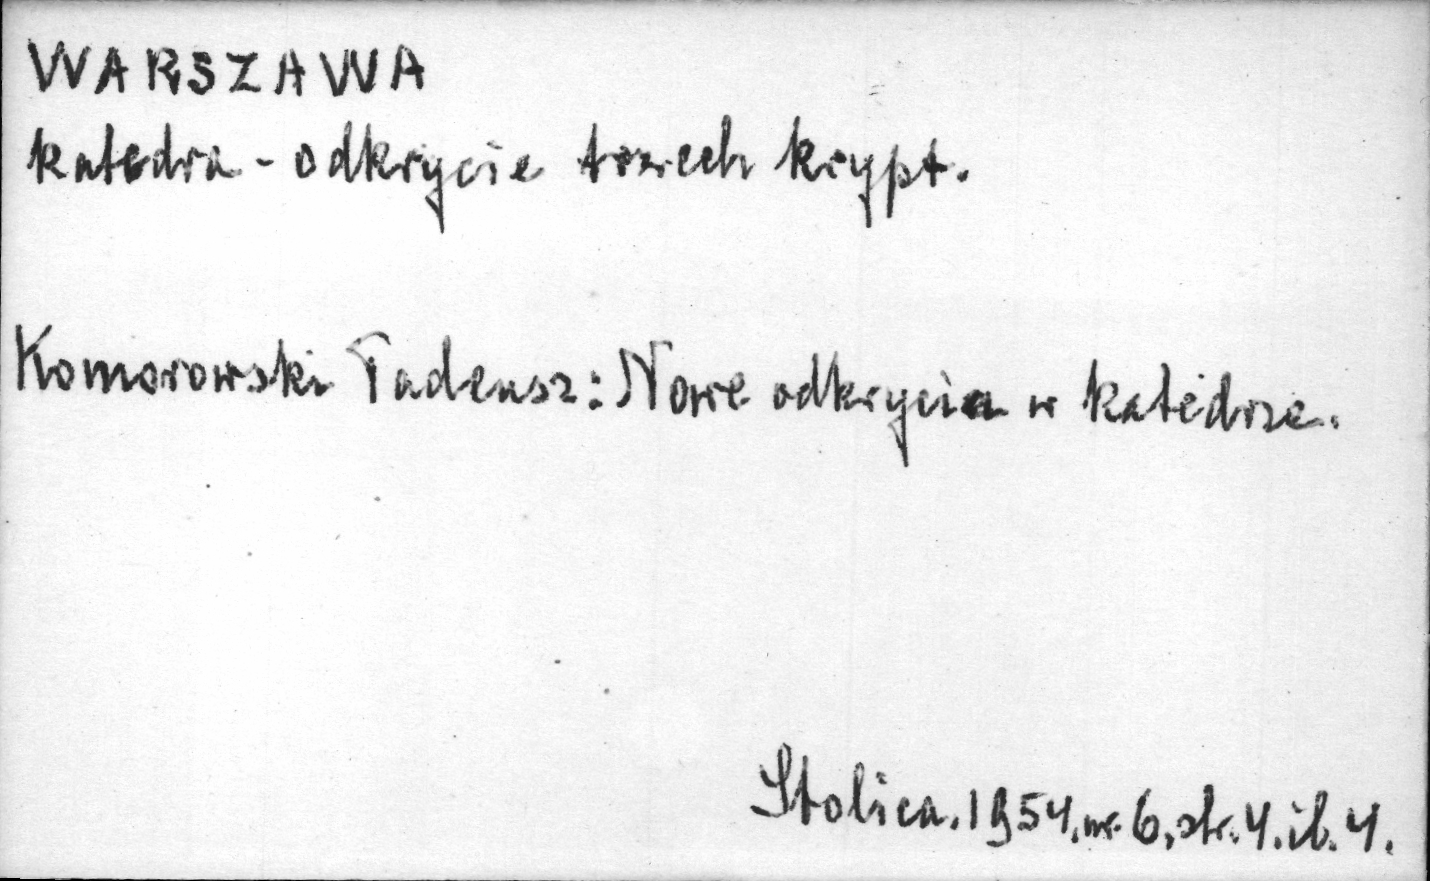 WARSZAWA
katedra - odkrycie trzech krypt.
Komorowski Tadeusz: Nowe odkrycia w katedrze.
Stolica. 1954. nr. 6, str. 4. il. 4.